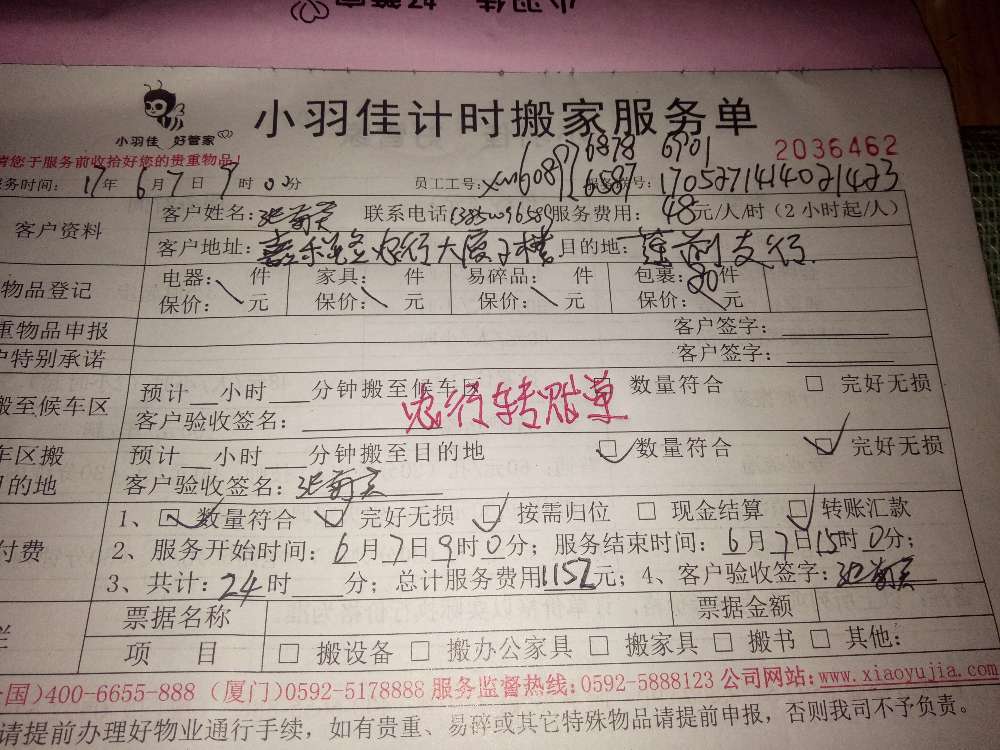 小羽佳 好管家
小羽佳计时搬家服务单
请您于服务前收拾好您的贵重物品!
2036462
6878 6901
服务时间: 17年6月7日9时00分 员工工号: xm6089 6587 1705271414021423
客户资料
客户姓名: 联系电话 服务费用: 48元/人/时(2小时起/人)
客户地址: 目的地: 莲前支行
物品登记
电器: 件 家具: 件 易碎品: 件 包裹: 80件
保价: 元 保价: 元 保价: 元 保价: 元
重物品申报 客户签字:
户特别承诺 客户签字:
搬至候车区
预计 小时 分钟搬至候车区 数量符合 □ 完好无损
客户验收签名:
总行转账单
车区搬
目的地
预计 小时 分钟搬至目的地 □ 数量符合 □ 完好无损
客户验收签名:
付费
1、□ 数量符合 □ 完好无损 □ 按需归位 □ 现金结算 □ 转账汇款
2、服务开始时间: 6月7日9时0分; 服务结束时间: 6月7日15时0分;
3、共计: 24时 分; 总计服务费用1152元; 4、客户验收签字:
票据名称 票据金额
项 目 □ 搬设备 □ 搬办公家具 □ 搬家具 □ 搬书 □ 其他:
国)400-6655-888 (厦门)0592-5178888 服务监督热线:0592-5888123 公司网站:www.xiaoyujia.com
请提前办理好物业通行手续, 如有贵重、易碎或其它特殊物品请提前申报, 否则我司不予负责。